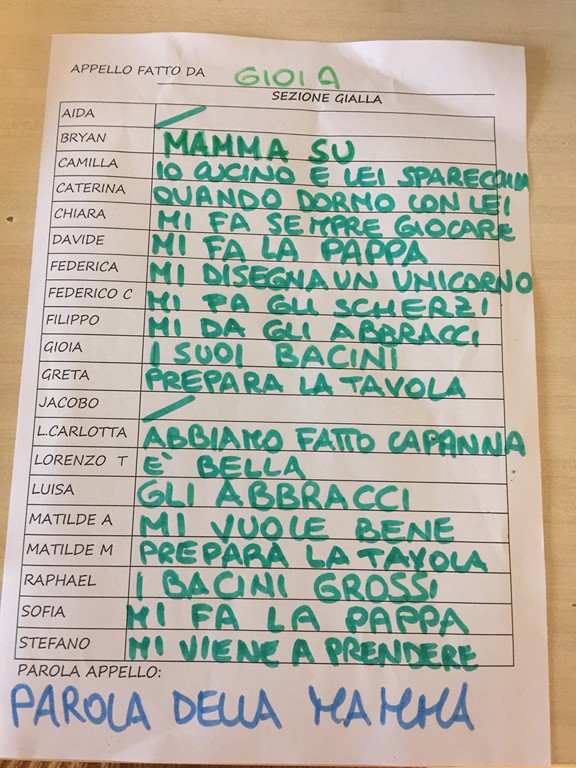 APPELLO FATTO DA GIOIA
SEZIONE GIALLA
AIDA /
BRYAN MAMMA SU
CAMILLA IO CUCINO E LEI SPARECCHIA
CATERINA QUANDO DORMO CON LEI
CHIARA MI FA SEMPRE GIOCARE
DAVIDE MI FA LA PAPPA
FEDERICA MI DISEGNA UN UNICORNO
FEDERICO C MI FA GLI SCHERZI
FILIPPO MI DA GLI ABBRACCI
GIOIA I SUOI BACINI
GRETA PREPARA LA TAVOLA
JACOBO /
L.CARLOTTA ABBIAMO FATTO CAPANNA
LORENZO T E' BELLA
LUISA GLI ABBRACCI
MATILDE A MI VUOLE BENE
MATILDE M PREPARA LA TAVOLA
RAPHAEL I BACINI GROSSI
SOFIA MI FA LA PAPPA
STEFANO MI VIENE A PRENDERE
PAROLA APPELLO:
PAROLA DELLA MAMMA